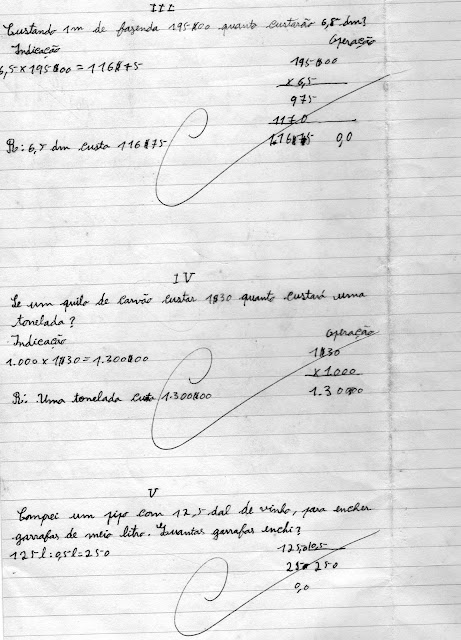 III
Custando 1m de fazenda 195$00 quanto custarão 6,5 dm?
Indicação
Operação
6,5 x 195$00 = 116$75
195$00
x 6,5
975
1170
116$75 0,0
R: 6,5 dm custa 116$75
IV
Se um quilo de carvão custar 1$30 quanto custará uma
tonelada?
Indicação
Operação
1.000 x 1$30 = 1.300$00
1$30
x 1.000
1.300$00
R: Uma tonelada custa 1.300$00
V
Compei um pipo com 12,5 dal de vinho, para encher
garrafas de meio litro. Quantas garrafas enchi?
125l : 0,5l = 250
125,0 0,5
25 250
0,0